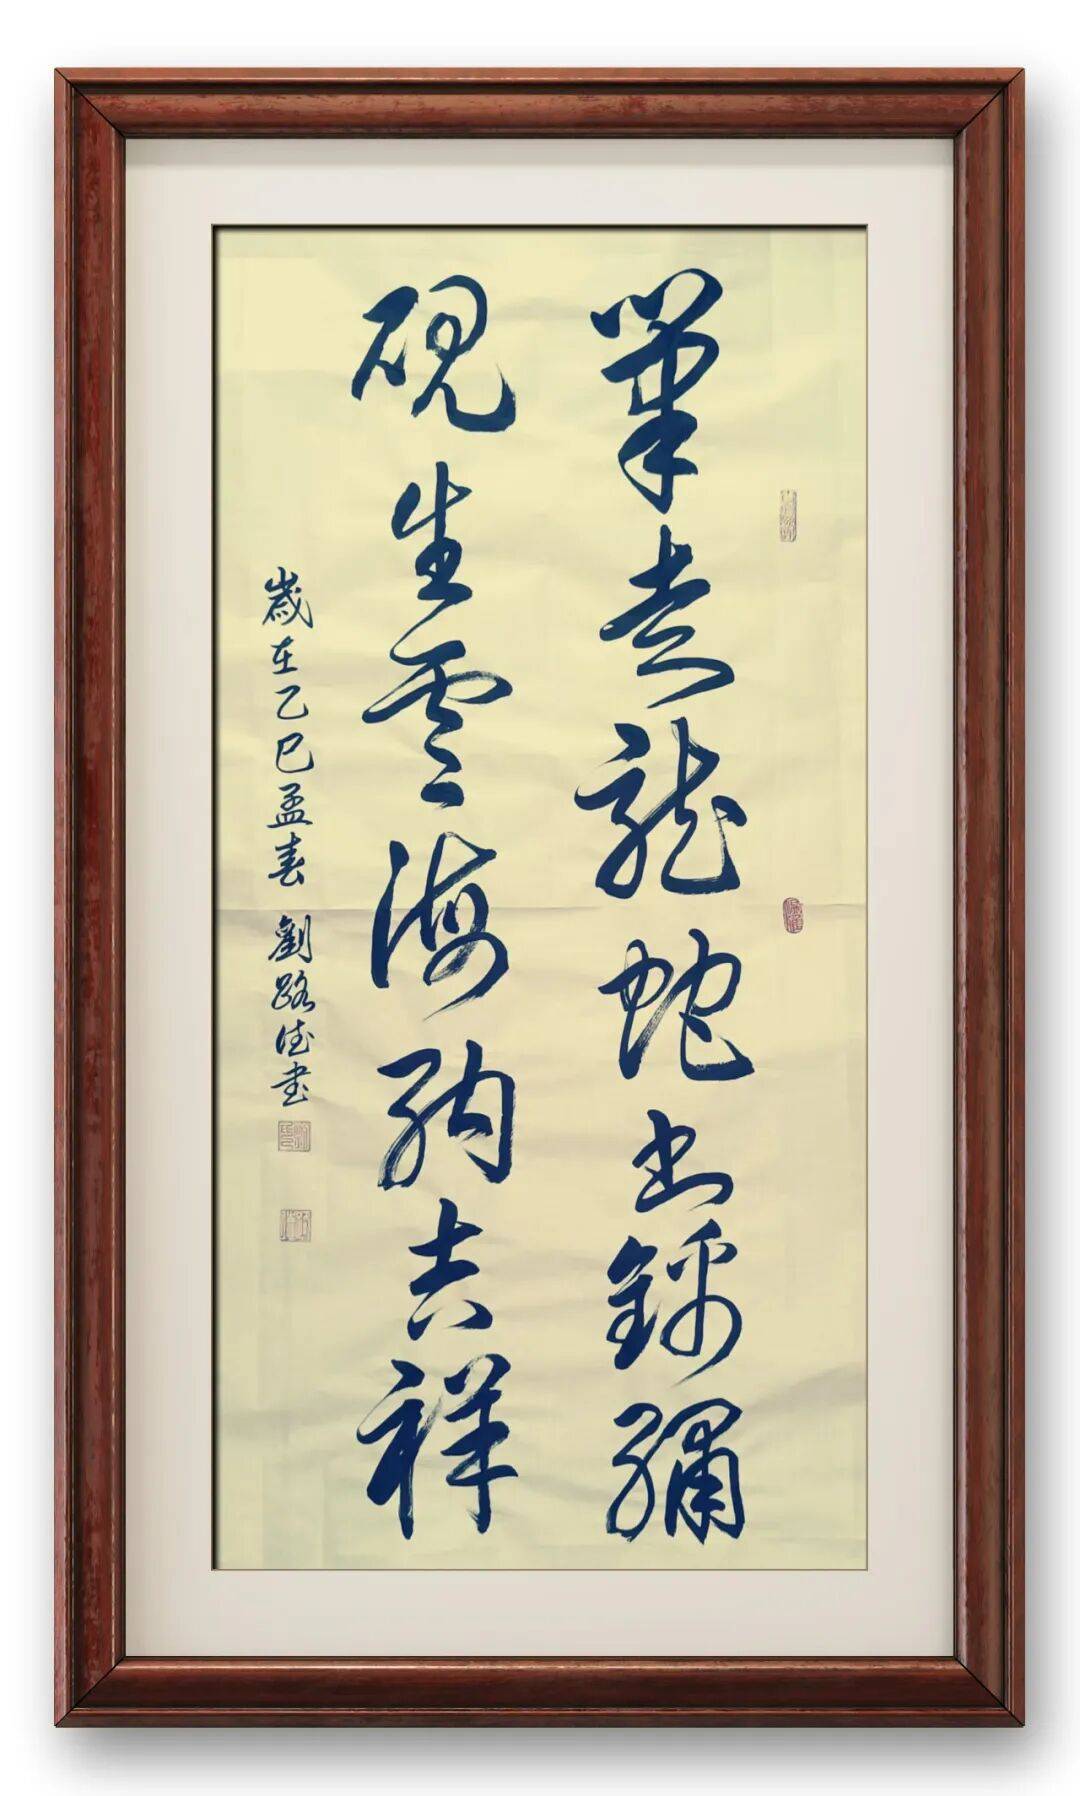 筆走龍蛇出錦繡
硯生雲海納吉祥
歲在乙巳孟春 劉路德書